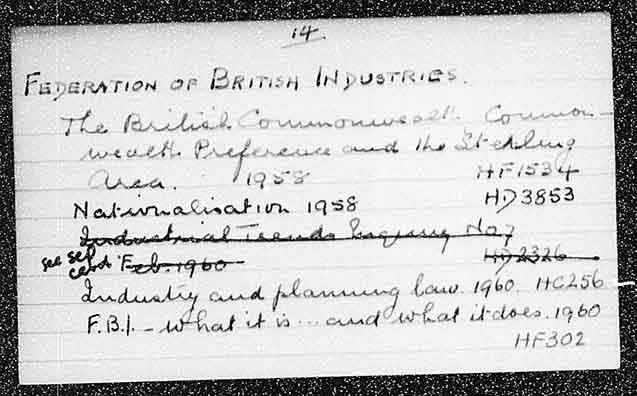 14
FEDERATION OF BRITISH INDUSTRIES.
The British Commonwealth Common-
wealth Preference and the Sterling
Area. 1958 HF1534
Nationalisation 1958 HD3853
Industrial Trends Enquiry No7
see sep card Feb. 1960 HD2326
Industry and planning law. 1960. HC256
F.B.I. - what it is ... and what it does. 1960
HF302